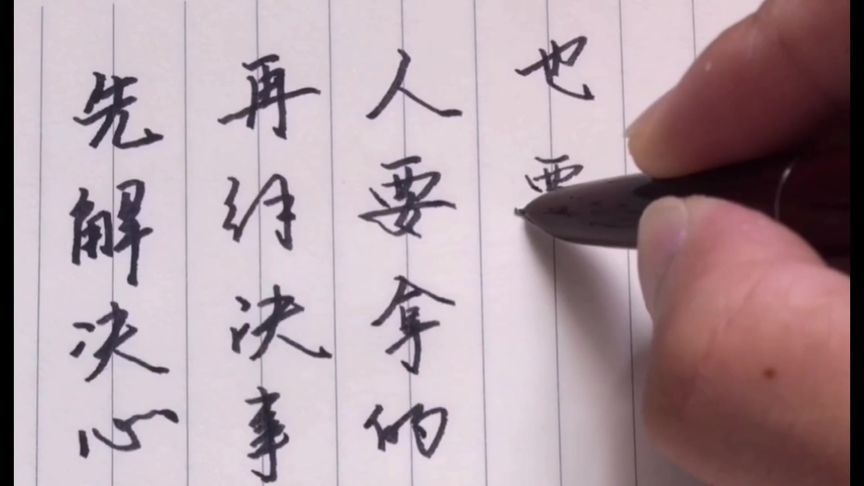 先解决心
再解决事
人要拿的
也要